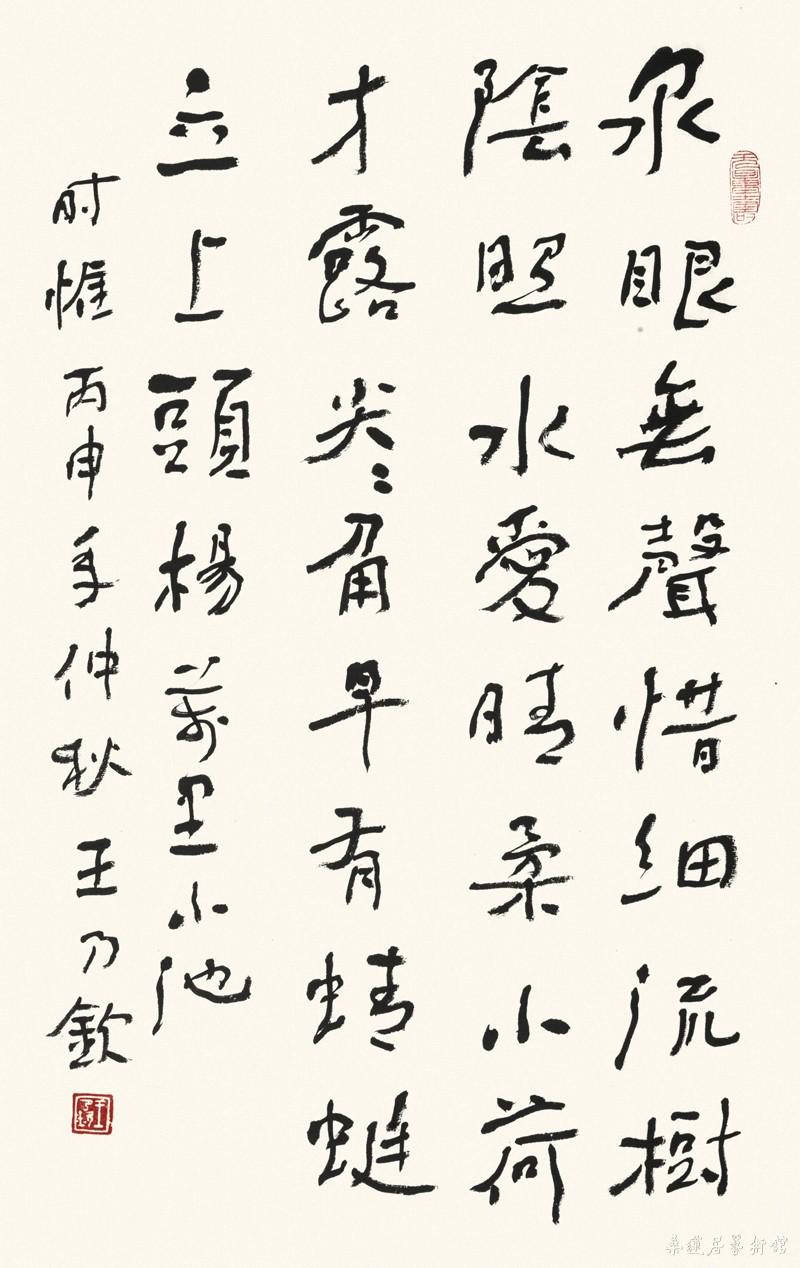 泉眼無聲惜細流樹
陰照水愛晴柔小荷
才露尖〻角早有蜻蜓
立上頭楊萬里小池
时惟丙申年仲秋王乃欽
桑蓮居藝術館